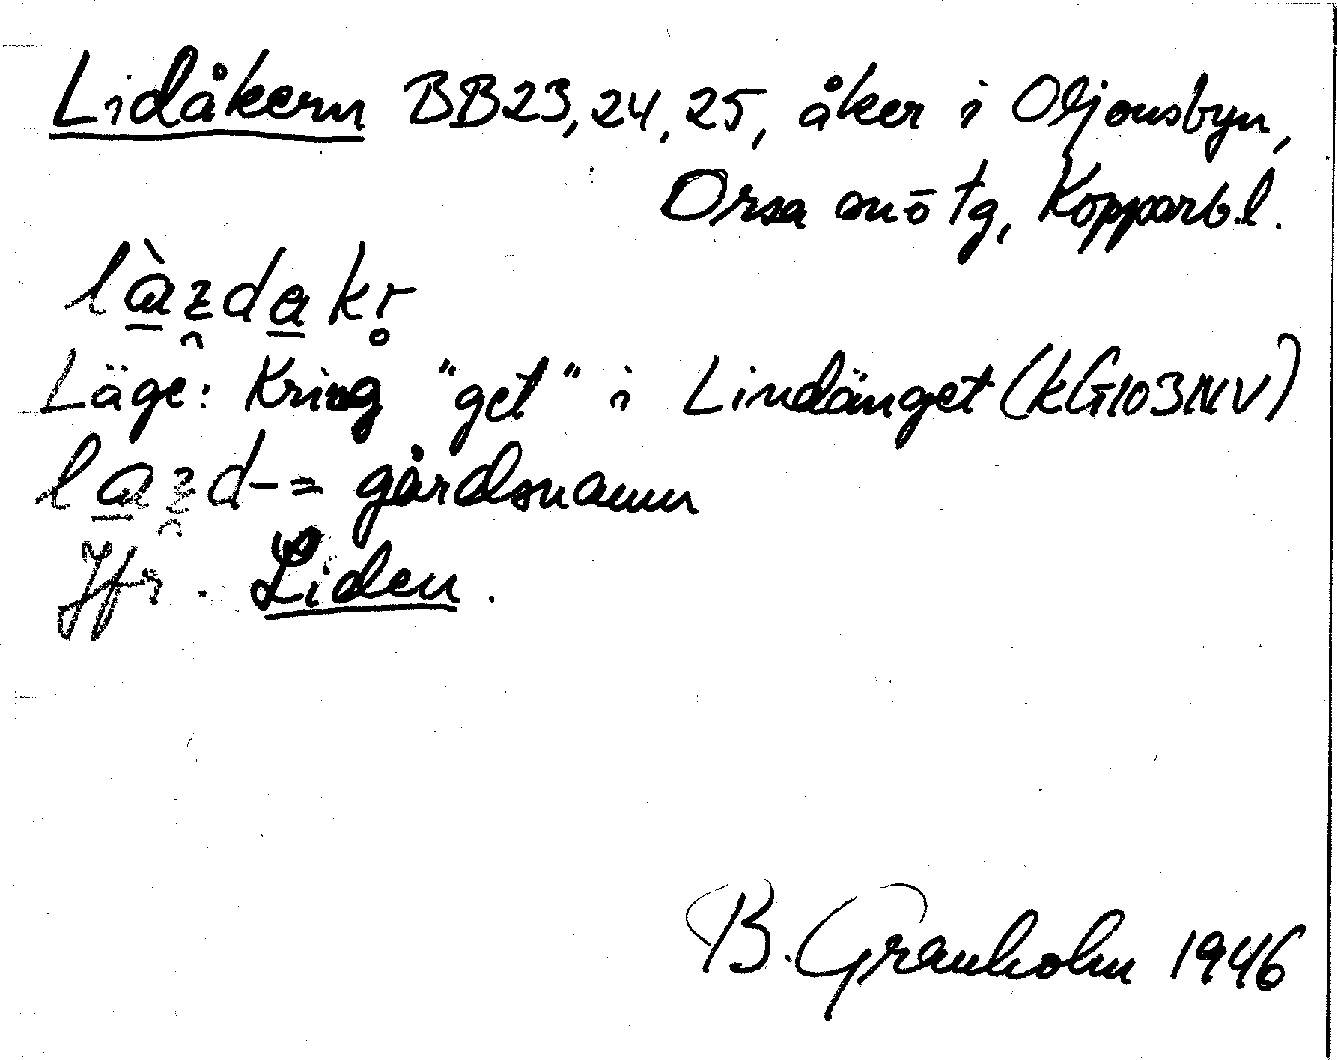 Lidåkern BB23, 24, 25, åker i Oljonsbyn,
Orsa sn o tg, Kopparb. l.
làzdakr̥
Läge: Kring "get" i Lindänget (kG103NV)
lazd- = gårdsnamn
Jfr. Liden.
B. Granholm 1946